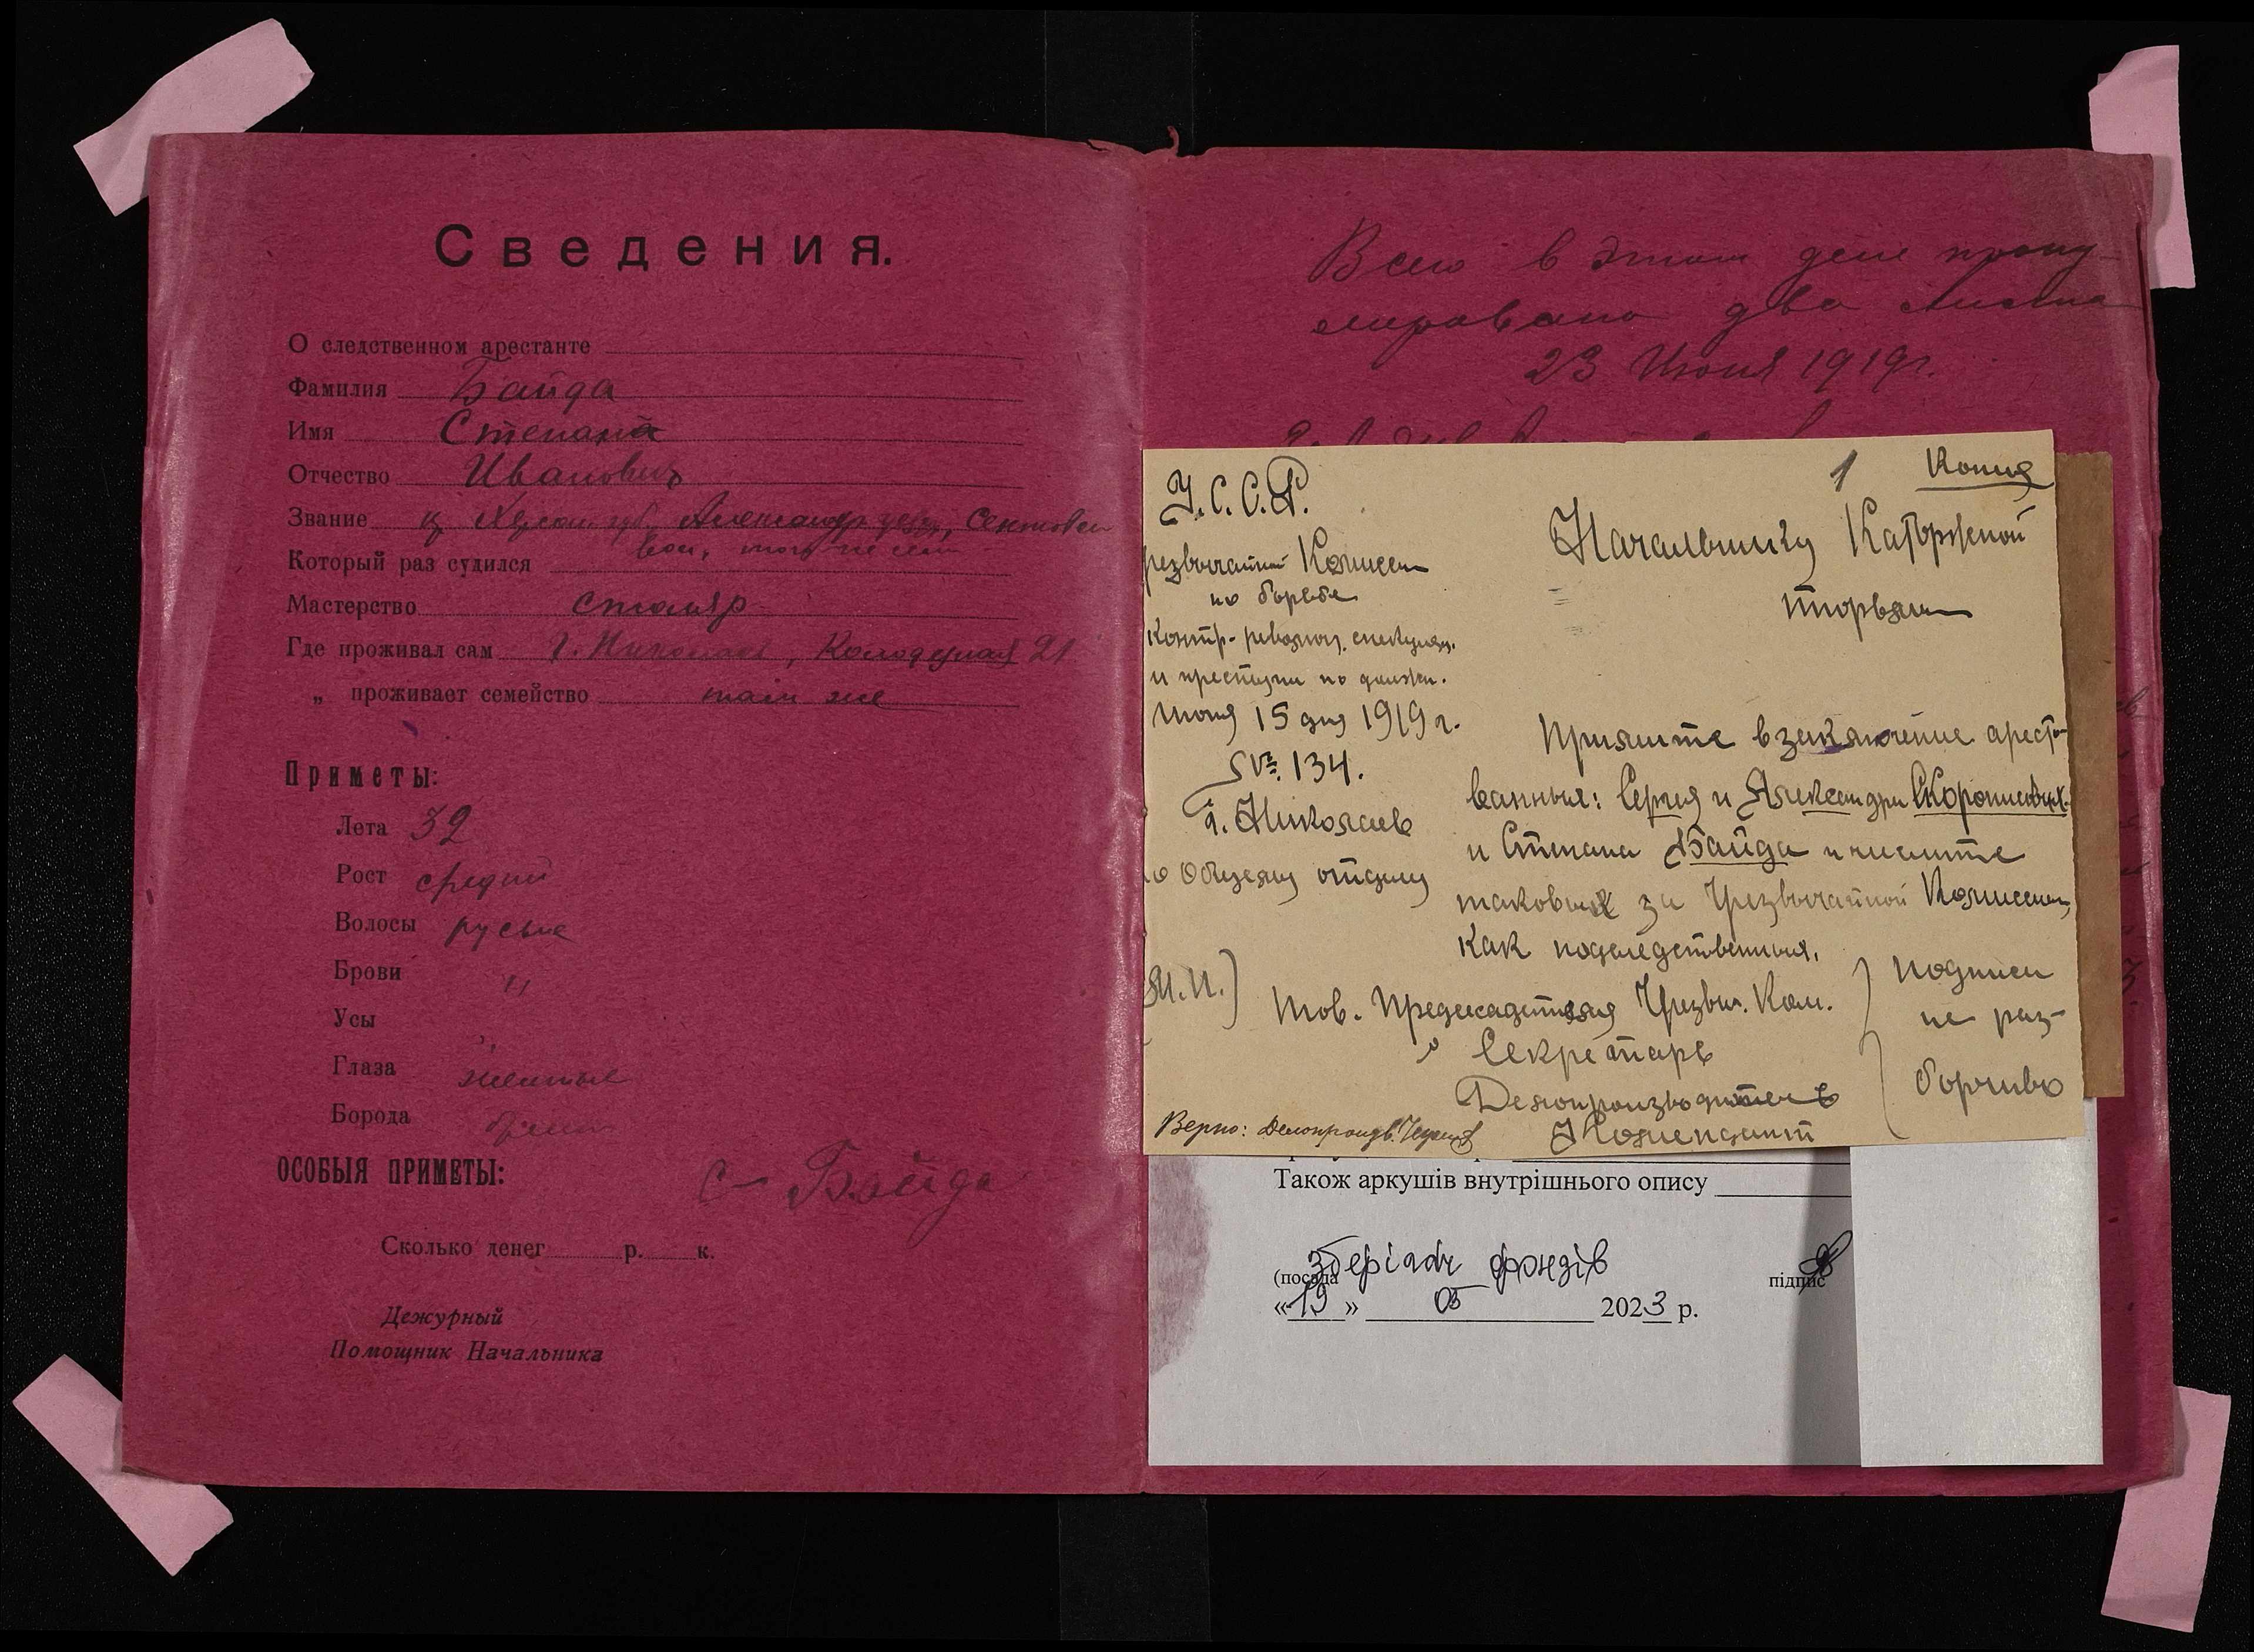 Сведения.
О следственном арестанте
Фамилия Байда
Имя Степана
Отчество Ивановичъ
Звание кр Херсон. губ., Александр уезд,
Который раз судился
Мастерство столяр
Где проживал сам г. Николаев, Колодезная 21
„ проживает семейство там же
Приметы:
Лета 32
Рост средний
Волосы русые
Брови "
Усы "
Глаза желтые
Борода
ОСОБЫЯ ПРИМЕТЫ:
С Байда
Сколько денег р. к.
Дежурный
Помощник Начальника
Всего в этом деле прону-
мировано два листа
23 Июня 1919 г.
1 Копия
У.С.С.Р.
резвычайной Комиссии
по борьбе
Контр-револю. спекуляц.
и преступл по должн.
Июня 15 дня 1919 г.
№ 134.
г. Николаев
по Общему отделу
Начальнику Каторжной
тюрьмы
Примите в заключение аресто-
ванных: Сергея и Александра Скоропис
и Степана Байда и числите
таковых за Чрезвычайной Комиссией,
как подследственных.
М.П.)
Тов. Председателя Чрезвы. Ком.
Секретарь
Делопроизводитель
Комендант
подписи
не раз-
борчиво
Верно: Делопроизв.
Також аркушів внутрішнього опису
зберігач фондів
(посада підпис
« 19 » 05 2023 р.